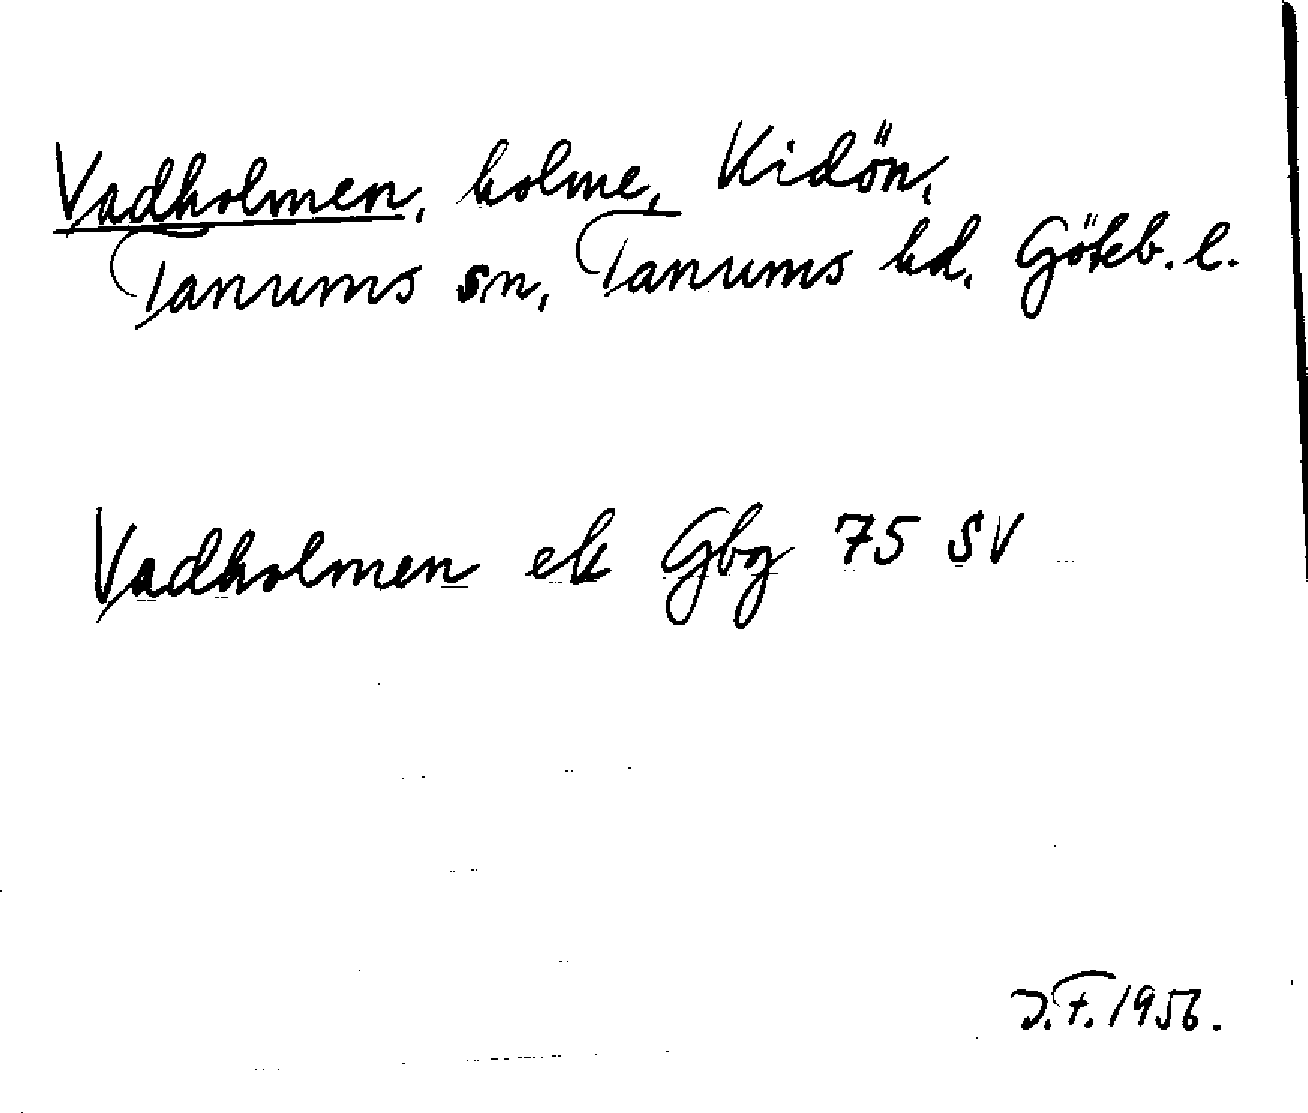 Vadholmen, holme, Kidön,
Tanums sn, Tanums hd. Göteb. l.
Vadholmen ek Gbg 75 SV
J.F. 1956.